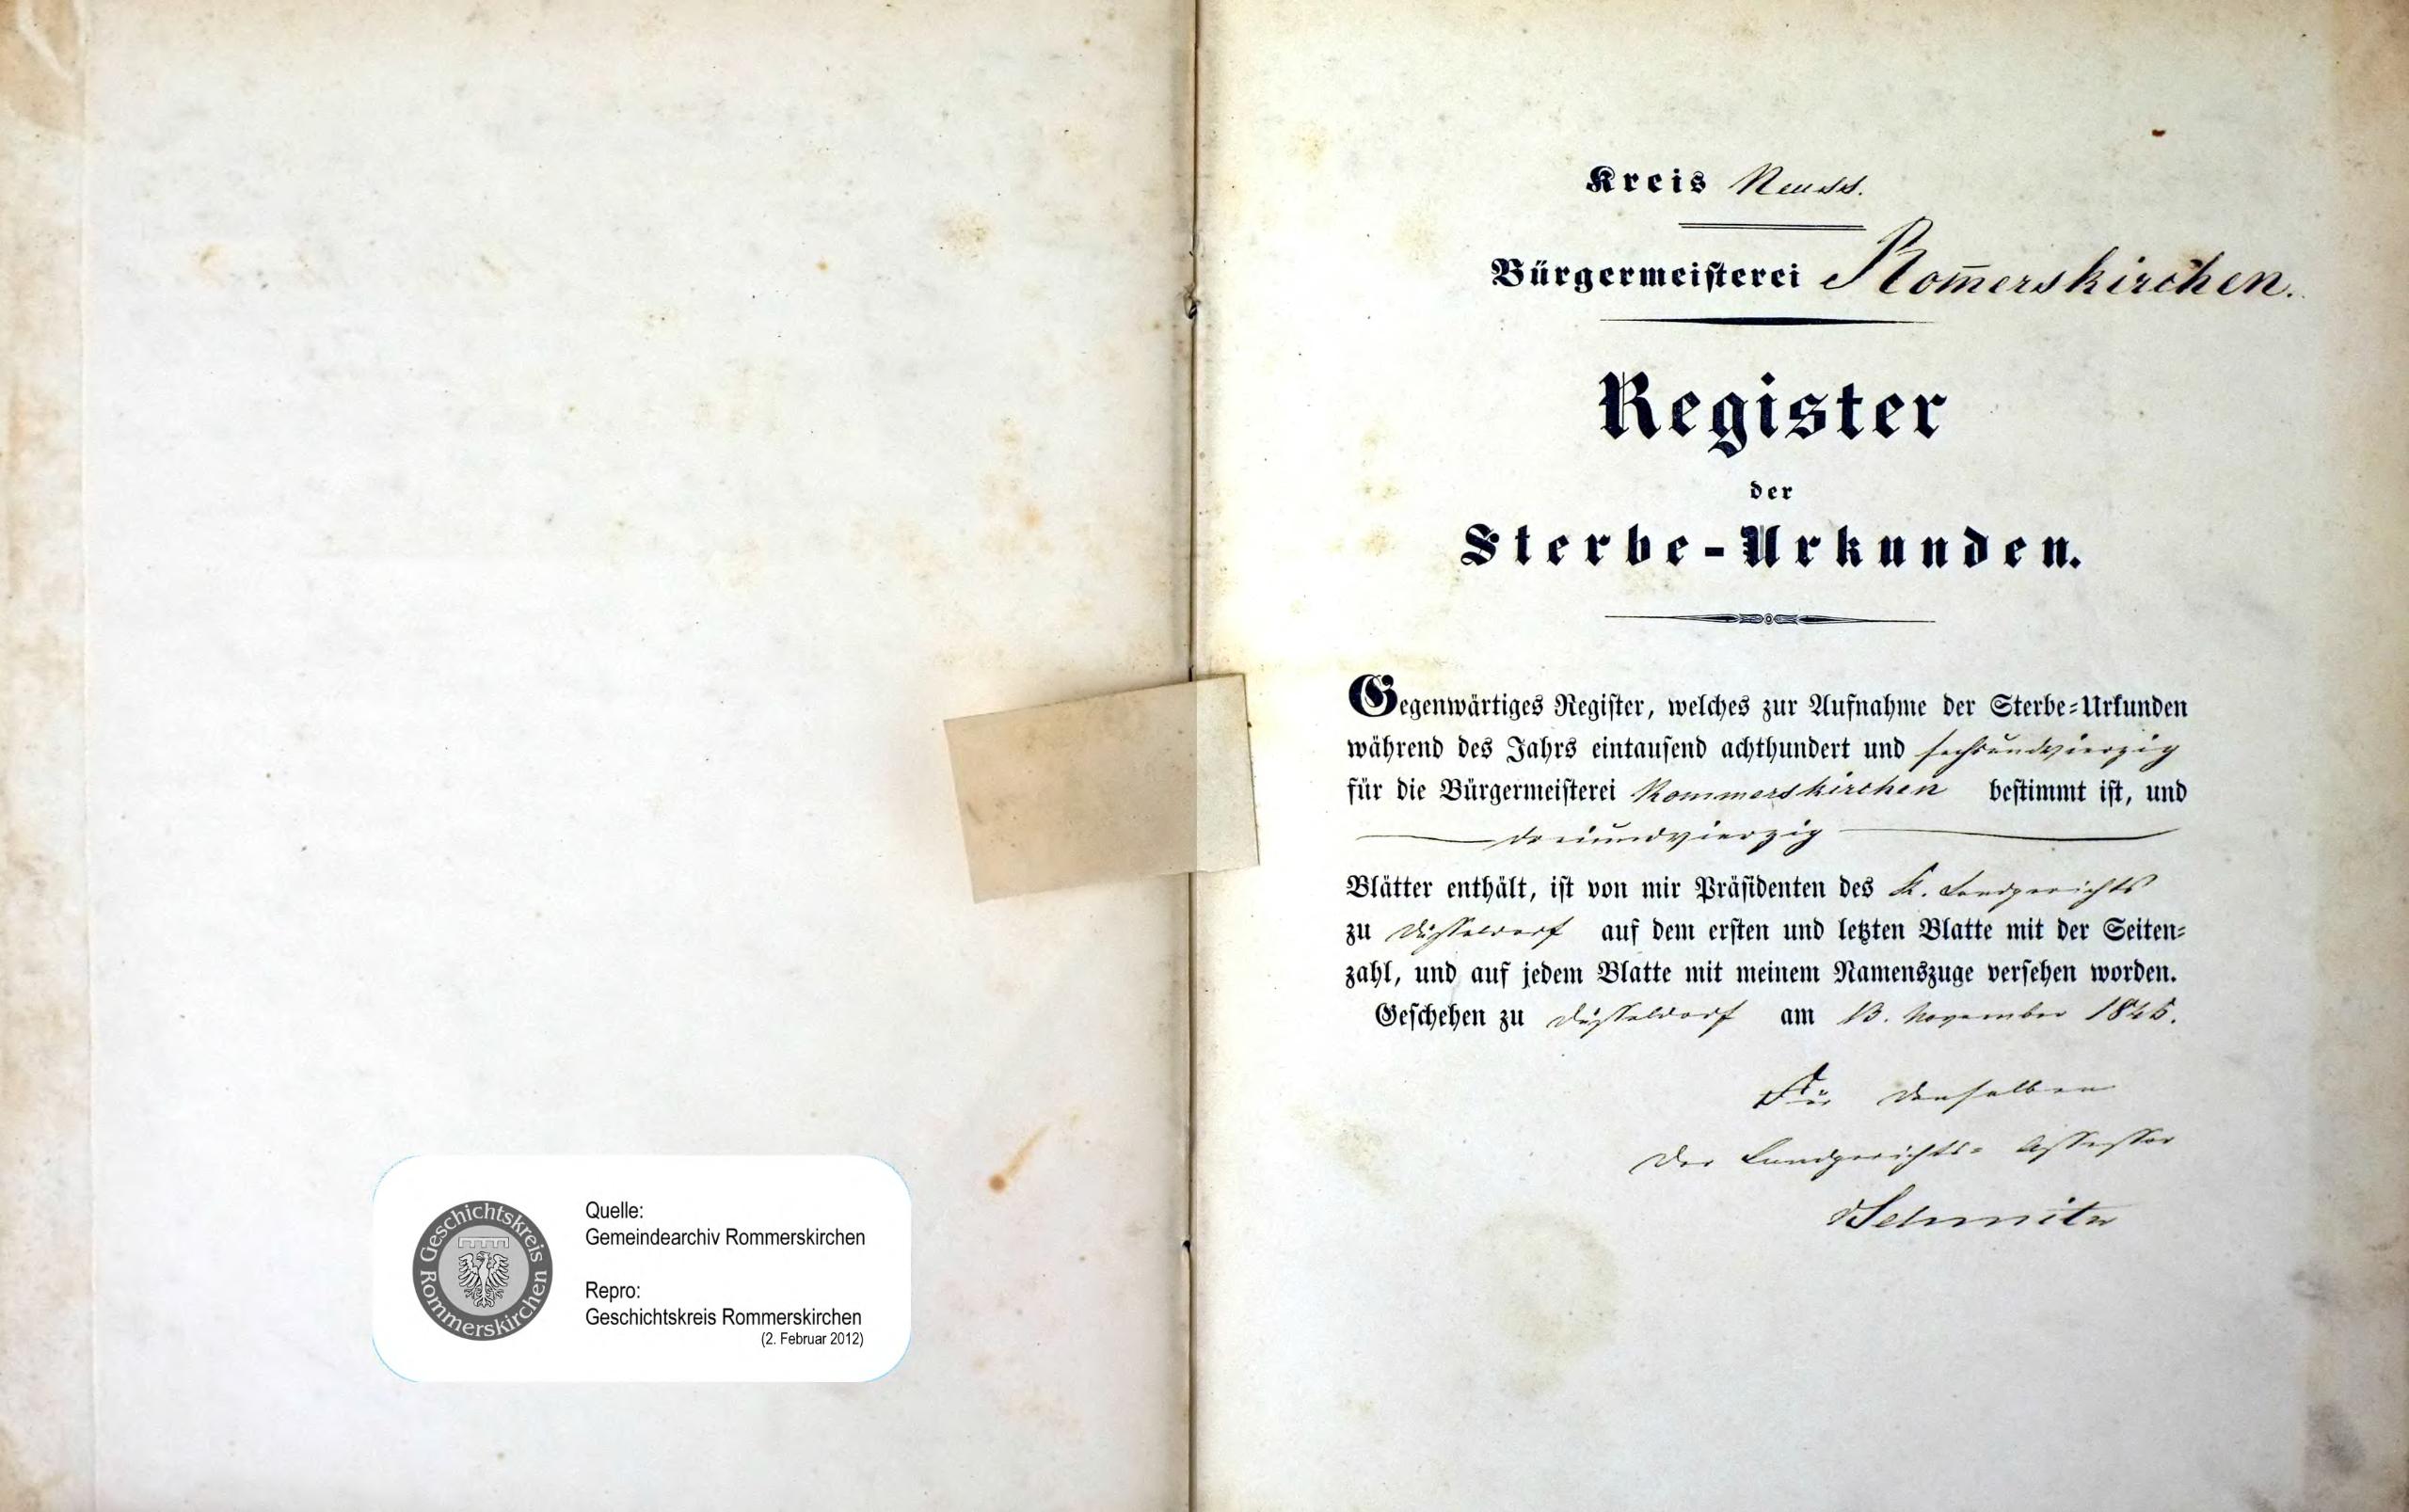 Geschichtskreis Rommerskirchen
Quelle:
Gemeindearchiv Rommerskirchen
Repro:
Geschichtskreis Rommerskirchen
(2. Februar 2012)
Kreis Neuss.
Bürgermeisterei Rom̅erskirchen.
Register
der
Sterbe-Urkunden.
Gegenwärtiges Register, welches zur Aufnahme der Sterbe-Urkunden
während des Jahrs eintausend achthundert und sechsundvierzig
für die Bürgermeisterei Rommerskirchen bestimmt ist, und
dreiundvierzig
Blätter enthält, ist von mir Präsidenten des K. Landgerichts
zu Düsseldorf auf dem ersten und letzten Blatte mit der Seiten-
zahl, und auf jedem Blatte mit meinem Namenszuge versehen worden.
Geschehen zu Düsseldorf am 13. November 1845.
Für denselben
Der Landgerichts-Assessor
Schmitz